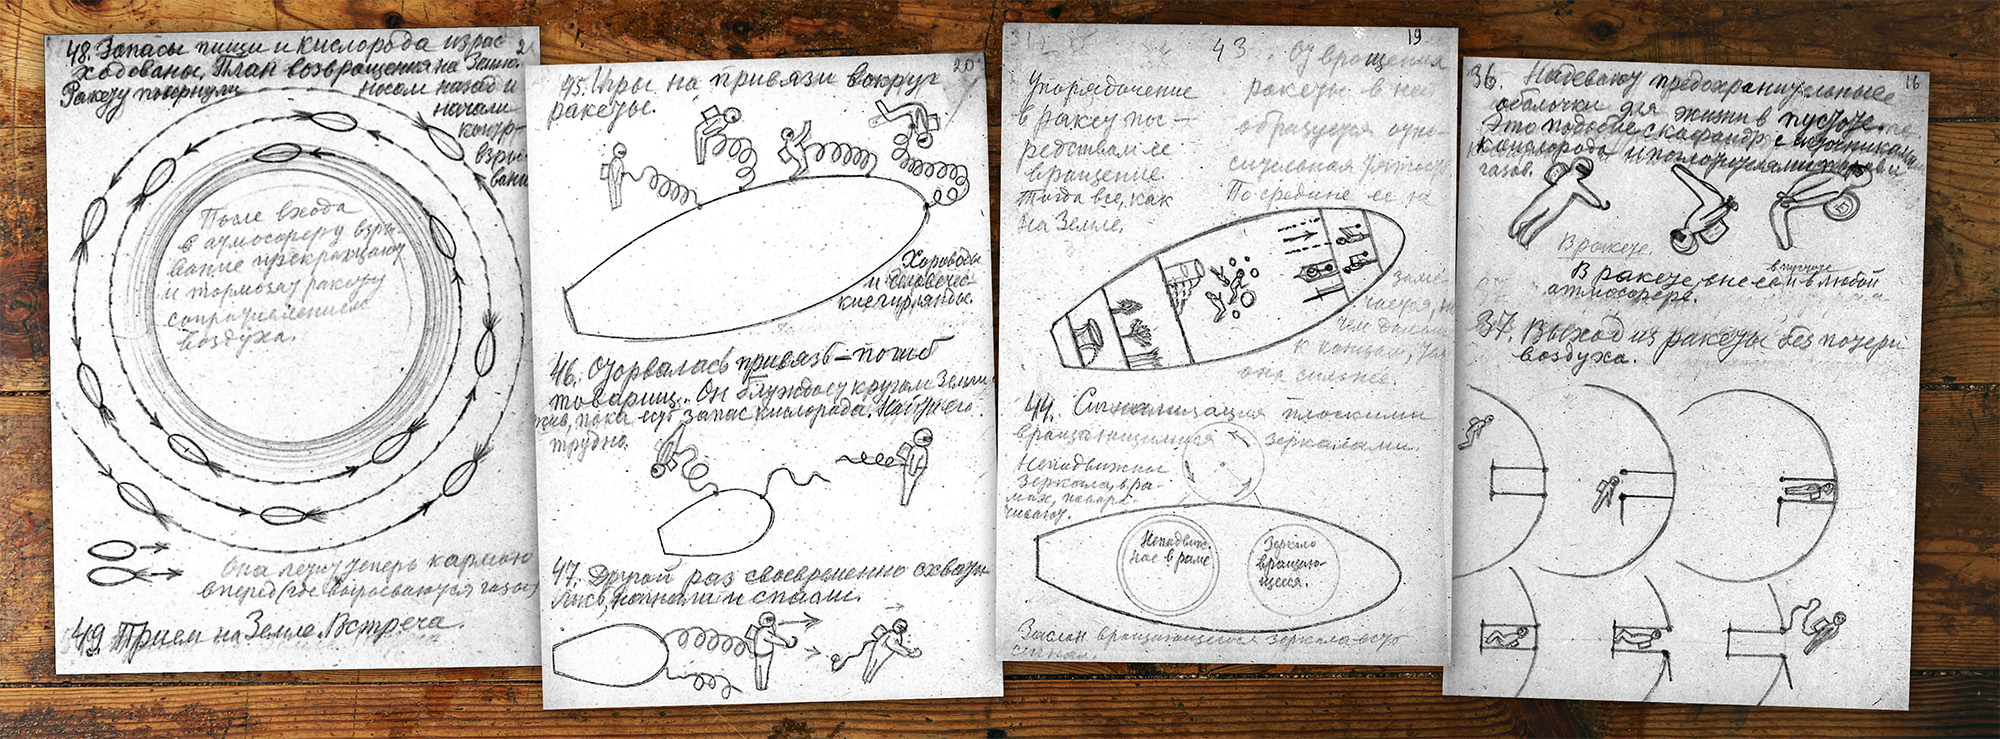 48. Запасы пищи и кислорода израс
ходованы. План возвращения на Землю.
Ракету повернули
носом назад и
начали
контр-
взры
вание
После входа
в атмосферу взры-
вание прекращают
и тормозят ракету
сопротивлением
воздуха.
Она летит теперь кормою
вперед (где выбрасываются газы)
49. Прием на Земле. Встреча.
20
45. Игры на привязи вокруг
ракеты.
Хороводы
и человече-
ские гирлянды.
46. Оторвалась привязь – погиб
товарищ. Он блуждает кругом Земли,
жив, пока есть запас кислорода. Найти его
трудно.
47. Другой раз своевременно схвати-
лись, догнали и спасли.
19
43. От вращения
ракеты в ней
образуется отно-
сительная тяжесть
По средине ее не
заме
чается, но
чем дальше
к концам, тем
она сильнее.
Упорядочение
в ракете пос-
редством ее
вращение.
Тогда все, как
на Земле.
44. Сигнализация плоскими
вращающимися зеркалами.
Неподвижные
зеркала, в ра-
мах, повора-
чивают.
Неподвиж.
ное в раме
Зеркало
вращаю-
щееся.
Заслон вращающегося зеркала есть
сигнал.
16
36. Надевают предохранительные
оболочки для жизни в пустоте.
Это подобие скафандр с источниками
кислорода и поглотителями паров и
газов.
В ракете.
в пустоте
В ракете, вне ее и в любой
атмосфере.
37. Выход из ракеты без потери
воздуха.